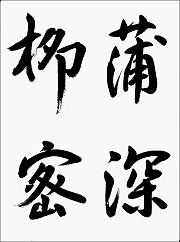 蒲深
柳密